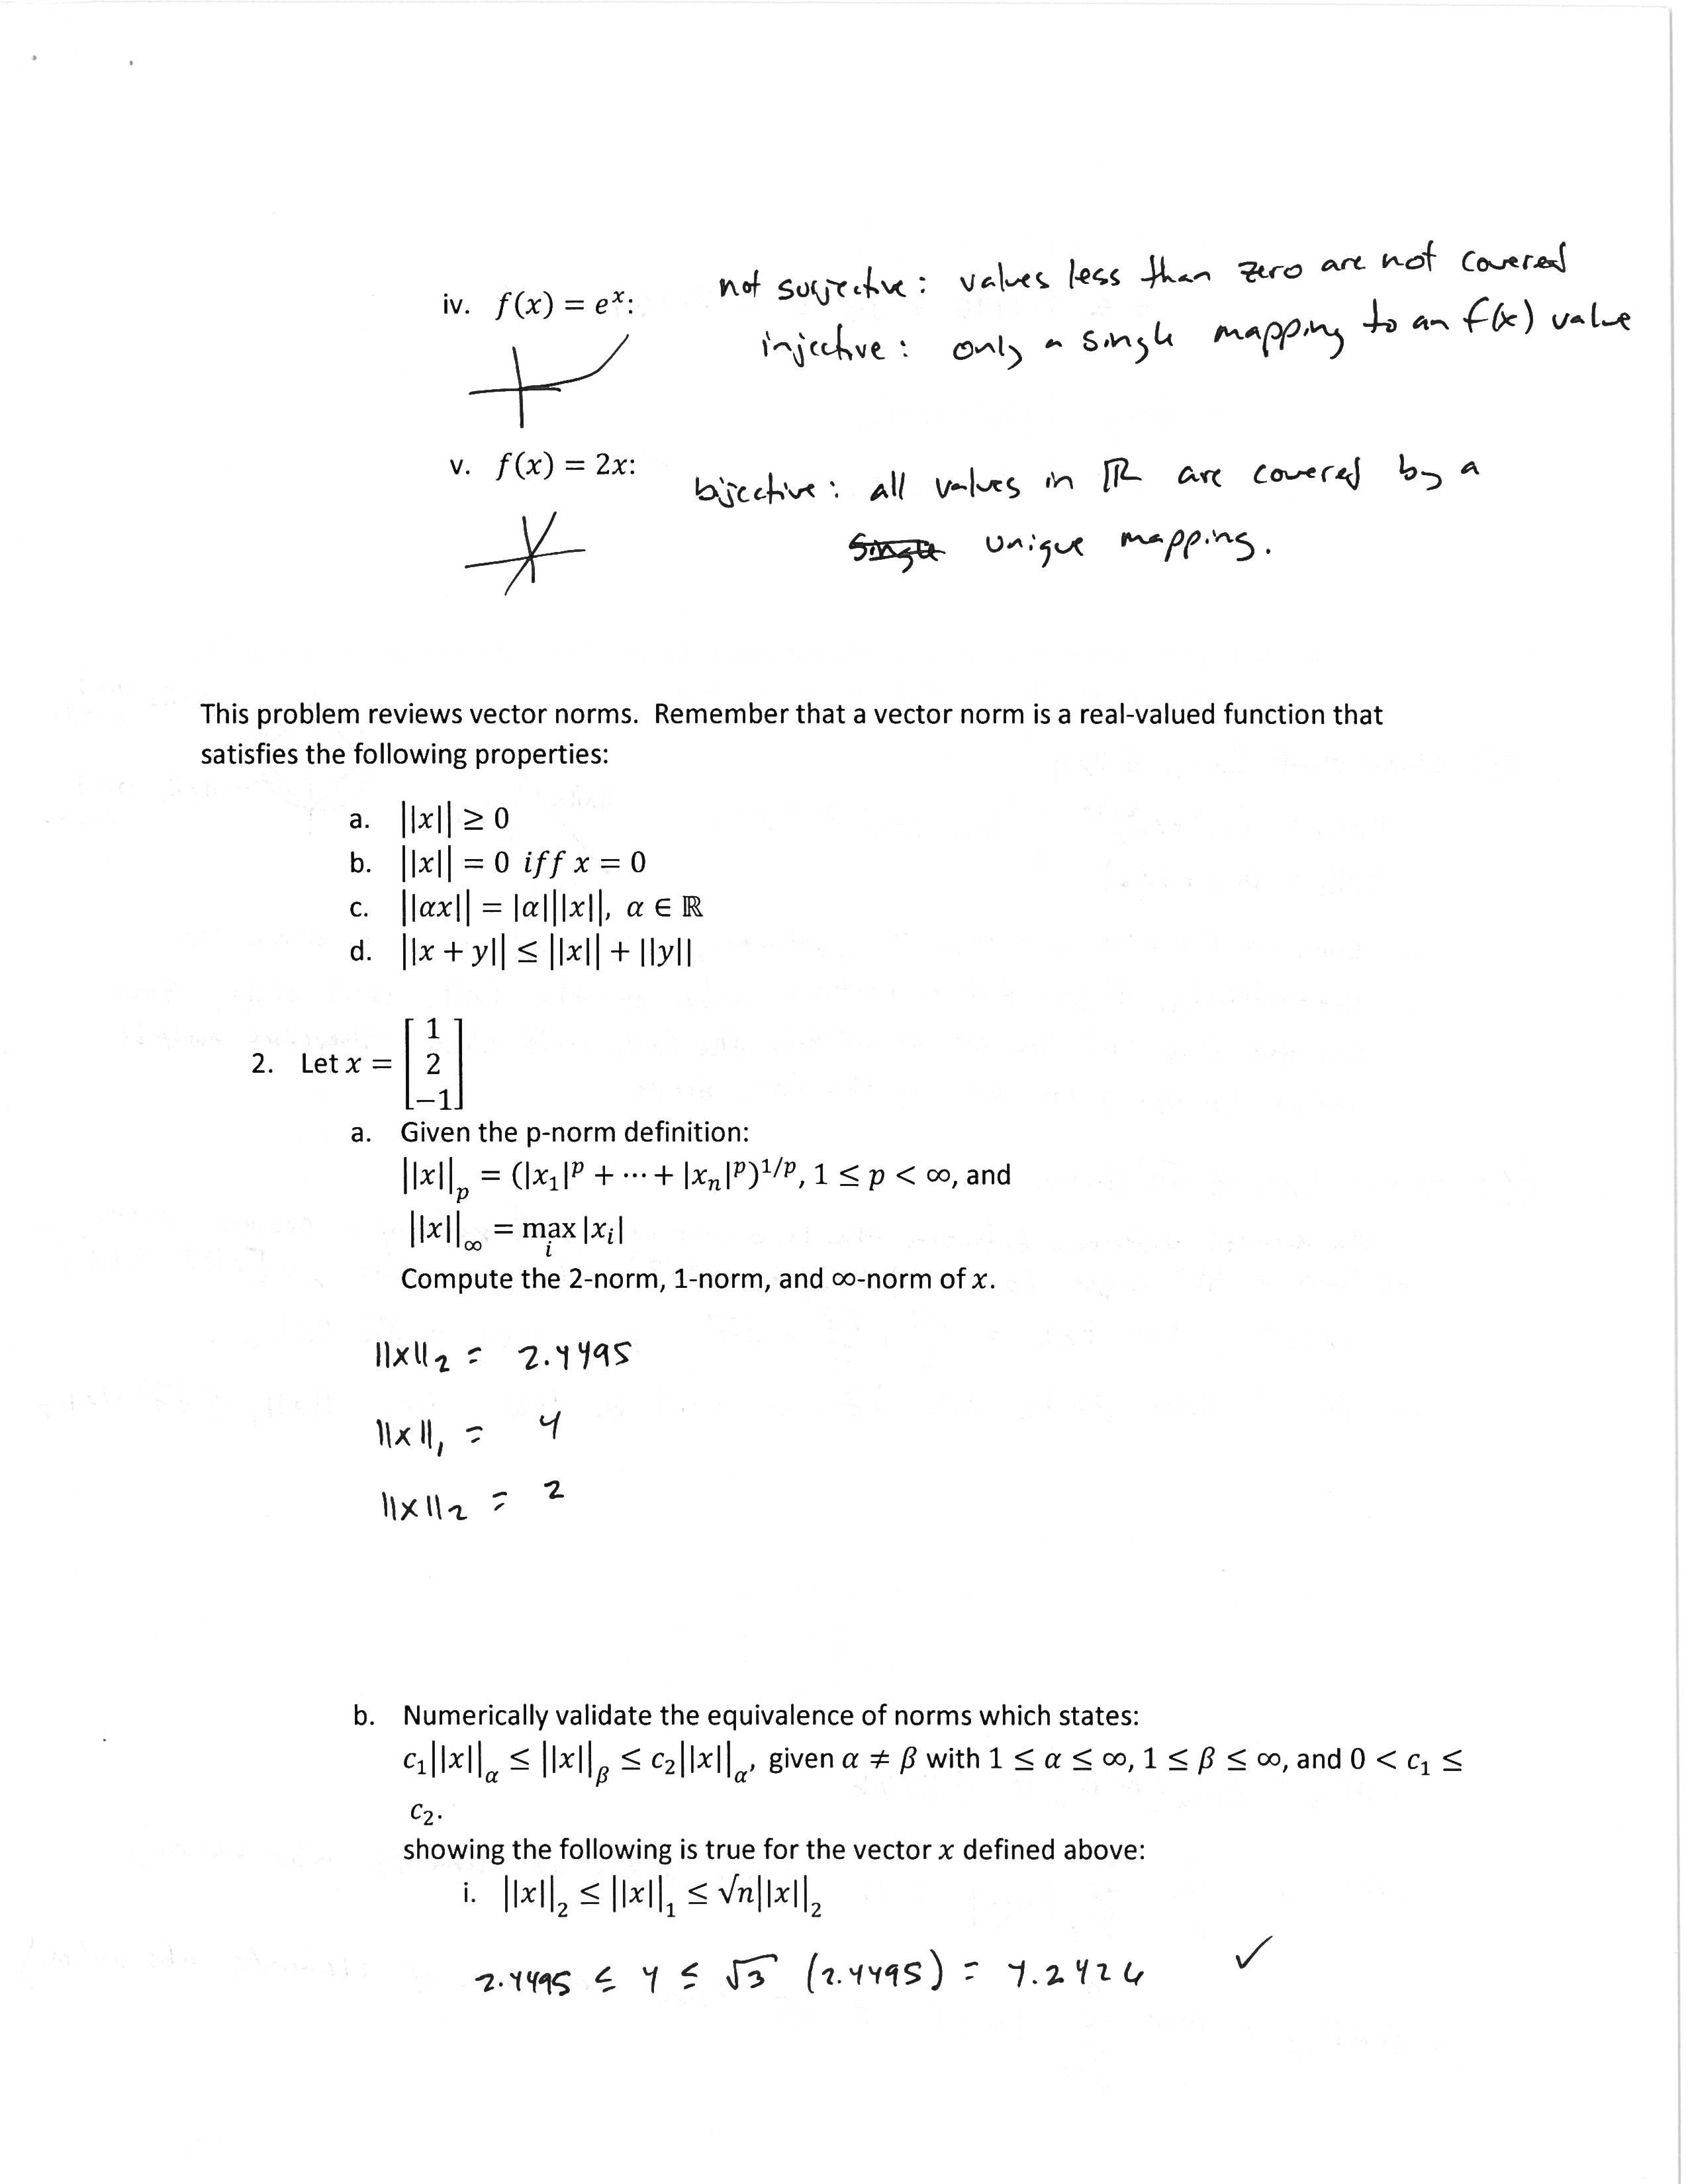 iv. f(x) = eˣ: not surjective: values less than zero are not covered
injective: only a single mapping to an f(x) value
v. f(x) = 2x: bijective: all values in ℝ are covered by a
unique mapping.
This problem reviews vector norms. Remember that a vector norm is a real-valued function that
satisfies the following properties:
a. ||x|| ≥ 0
b. ||x|| = 0 iff x = 0
c. ||αx|| = |α|||x||, α ∈ ℝ
d. ||x + y|| ≤ ||x|| + ||y||
2. Let x = [1
2
−1]
a. Given the p-norm definition:
||x||ₚ = (|x₁|ᵖ + ⋯ + |xₙ|ᵖ)¹/ᵖ, 1 ≤ p < ∞, and
||x||∞ = max |xᵢ|
i
Compute the 2-norm, 1-norm, and ∞-norm of x.
||x||₂ = 2.4495
||x||₁ = 4
||x||₂ = 2
b. Numerically validate the equivalence of norms which states:
c₁||x||α ≤ ||x||β ≤ c₂||x||α, given α ≠ β with 1 ≤ α ≤ ∞, 1 ≤ β ≤ ∞, and 0 < c₁ ≤
c₂.
showing the following is true for the vector x defined above:
i. ||x||₂ ≤ ||x||₁ ≤ √n||x||₂
2.4495 ≤ 4 ≤ √3 (2.4495) = 4.2426 ✓